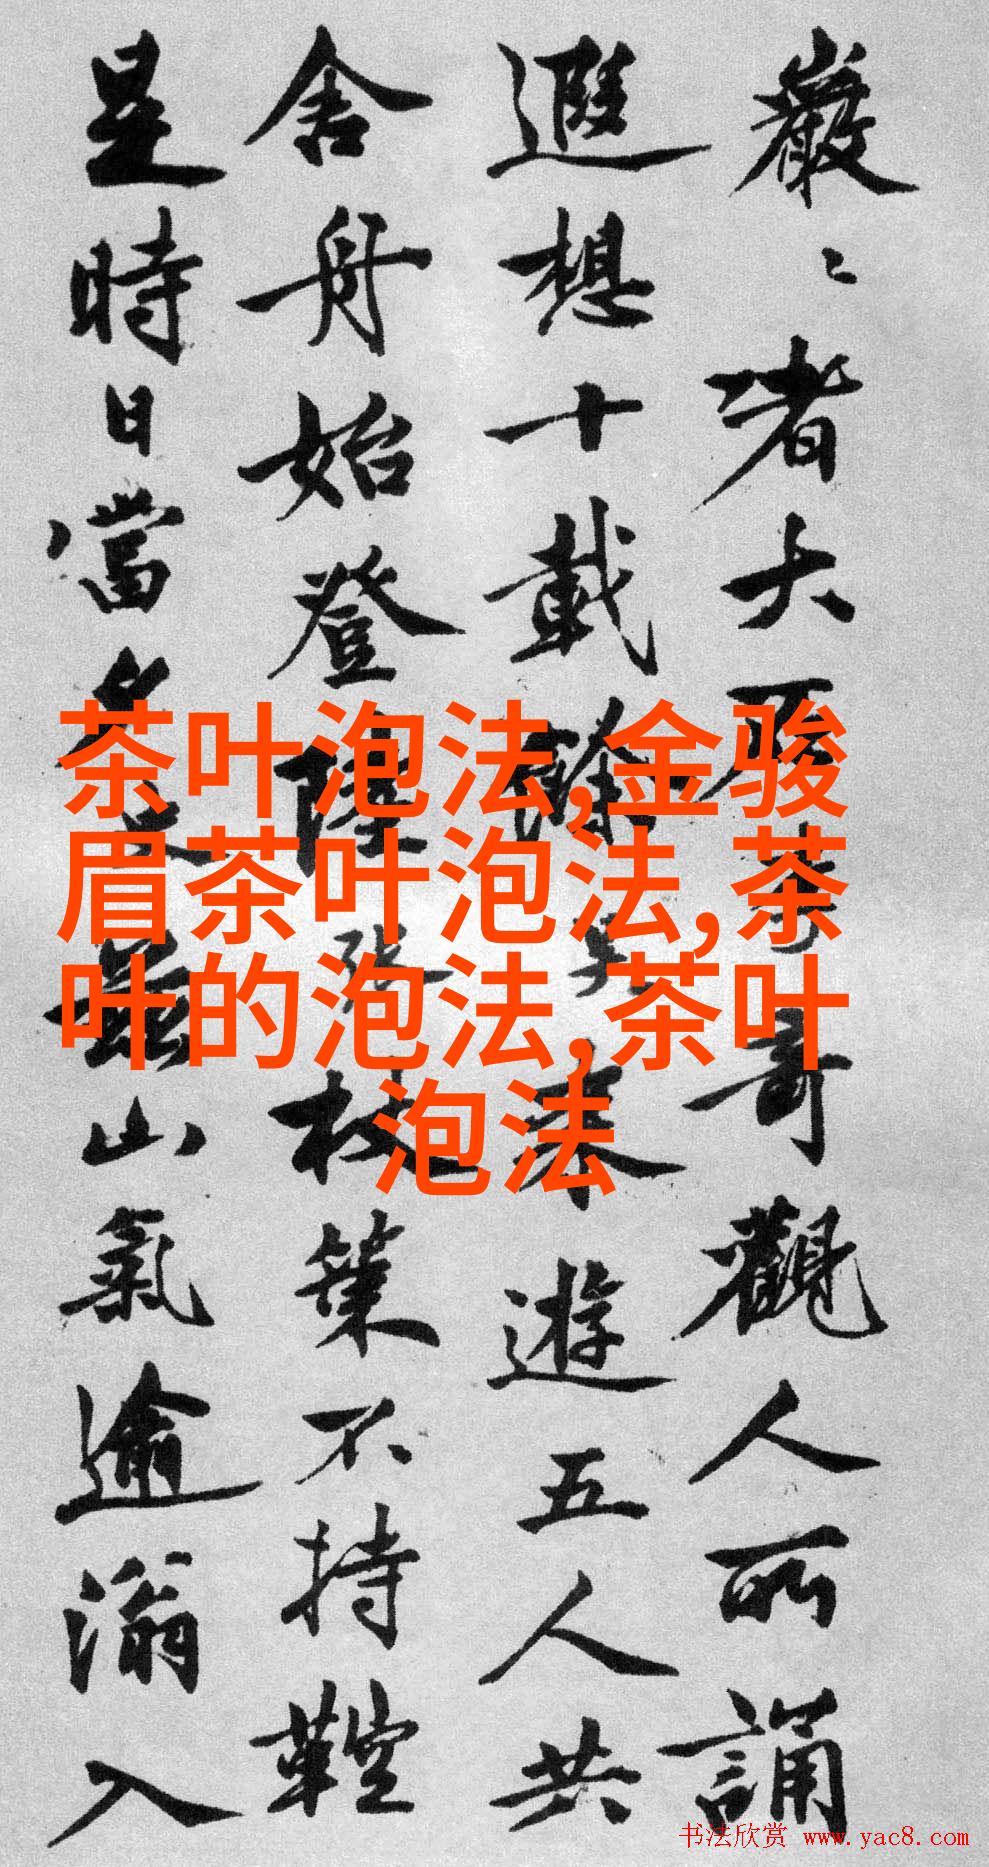 巖〻者大
哥觀人所誦
遐想十載
來遊五人共
舍舟始登
策不持鞚
是時日當
山氣逾滃入
茶叶泡法,金骏
眉茶叶泡法,茶
叶的泡法,茶叶
泡法
书法欣赏 www.yac8.com